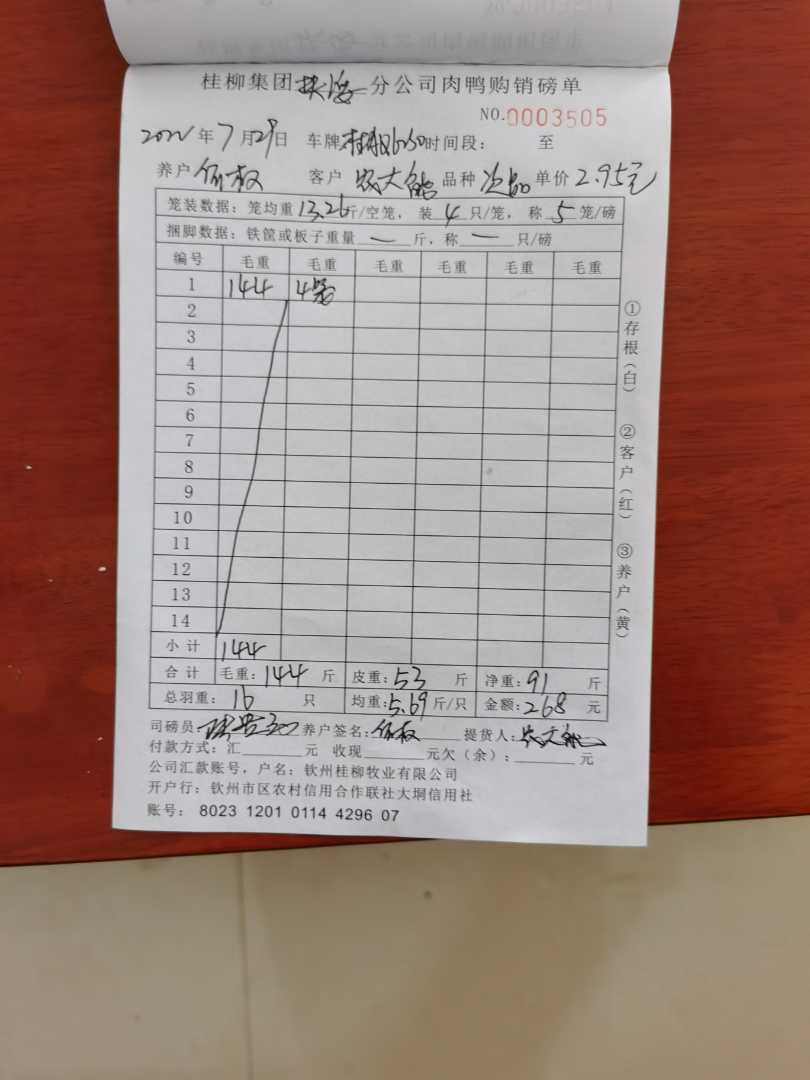 桂柳集团 分公司肉鸭购销磅单
NO.0003505
2022年7月29日 车牌 时间段: 至
养户 客户 农大能 品种 次品 单价 2.95元
笼装数据: 笼均重13.26斤/空笼, 装4只/笼, 称5笼/磅
捆脚数据: 铁筐或板子重量—斤, 称—只/磅
编号 毛重 毛重 毛重 毛重 毛重 毛重
1 144 4笼
2
3
4
5
6
7
8
9
10
11
12
13
14
小计 144
合计 毛重: 144 斤 皮重: 53 斤 净重: 91 斤
总羽重: 16 只 均重: 5.69斤/只 金额: 268 元
司磅员 养户签名: 提货人:
付款方式: 汇 元 收现 元欠(余): 元
公司汇款账号, 户名: 钦州桂柳牧业有限公司
开户行: 钦州市区农村信用合作联社大垌信用社
账号: 8023 1201 0114 4296 07
①存根(白) ②客户(红) ③养户(黄)